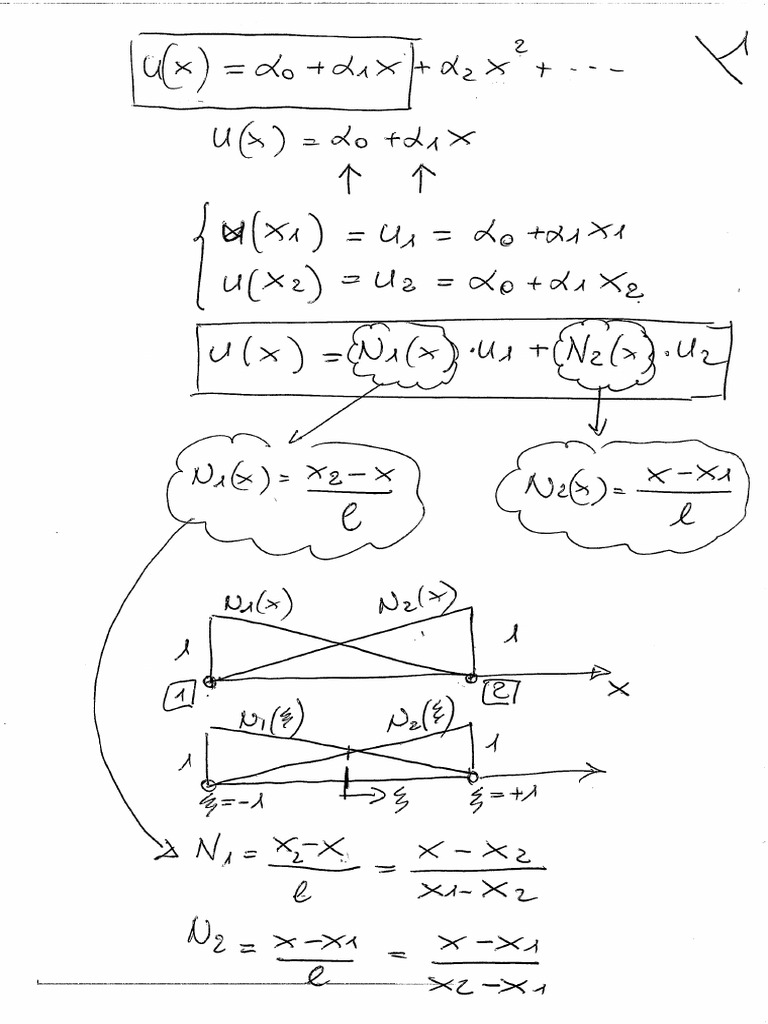 1
u(x) = α0 + α1x + α2x² + ...
u(x) = α0 + α1x
u(x1) = u1 = α0 + α1x1
u(x2) = u2 = α0 + α1x2
u(x) = N1(x) · u1 + N2(x) · u2
N1(x) = (x2 - x)/l N2(x) = (x - x1)/l
N1(x) N2(x)
1 1
1 2 x
N1(ξ) N2(ξ)
1 1
ξ=-1 ξ ξ=+1
N1 = (x2 - x)/l = (x - x2)/(x1 - x2)
N2 = (x - x1)/l = (x - x1)/(x2 - x1)